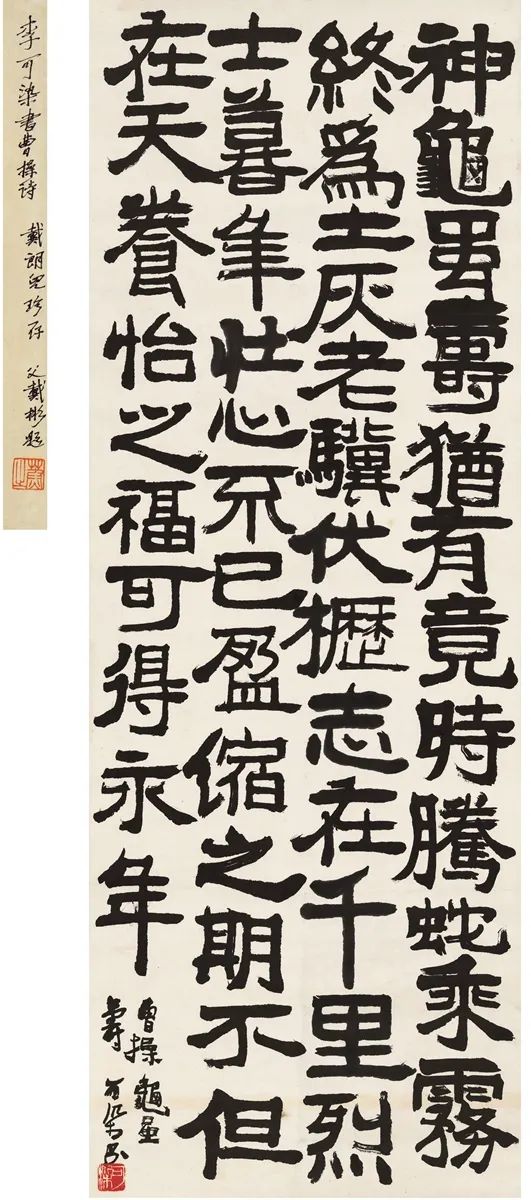 神龜虽壽猶有竟時騰蛇乘霧
終爲土灰老驥伏櫪志在千里烈
士暮年壯心不已盈縮之期不但
在天養怡之福可得永年
曹操龜虽
壽 可染書
可染
李可染書曹操詩 戴朗兒珍存 父戴彬題